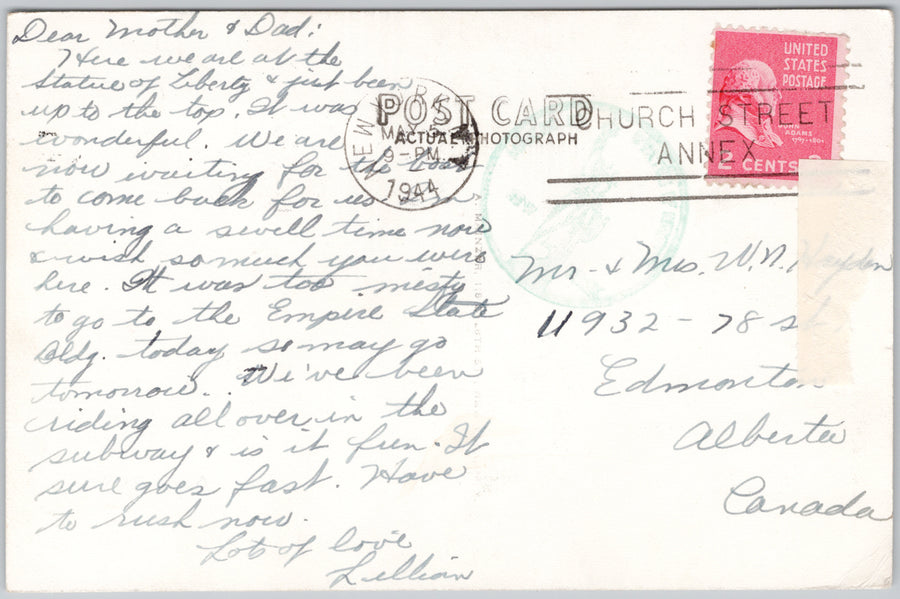 Dear Mother & Dad:
Here we are at the
Statue of Liberty & just been
up to the top. It was
wonderful. We are
now waiting for the boat
to come back for us. Am
having a swell time now
& wish so much you were
here. It was too misty
to go to the Empire State
Bldg. today so may go
tomorrow. We've been
riding all over in the
subway & is it fun. It
sure goes fast. Have
to rush now.
Lots of love
Lillian
POST CARD
ACTUAL PHOTOGRAPH
NEW YORK
9-PM
1944
CHURCH STREET
ANNEX
UNITED
STATES
POSTAGE
JOHN
ADAMS
1797-1801
2 CENTS 2
Mr. & Mrs. W. N. Hayden
11932 - 78 st.
Edmonton
Alberta
Canada